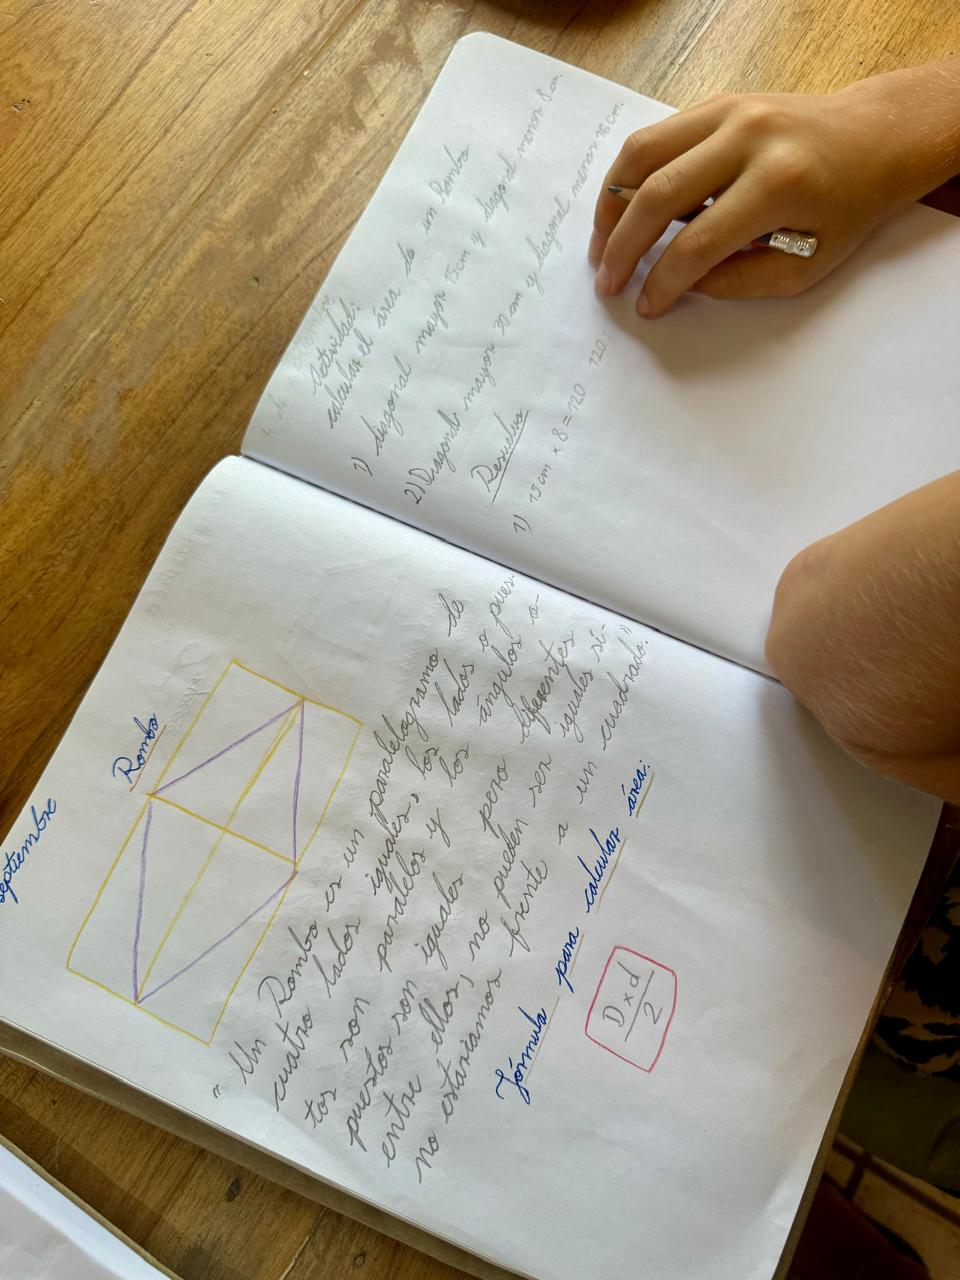 septiembre
Rombo
"Un Rombo es un paralelogramo de
cuatro lados iguales, los lados o pues-
tos son paralelos y los ángulos o-
puestos son iguales pero diferentes
entre ellos, no pueden ser iguales si-
no estariamos frente a un cuadrado."
Fórmula para calcular área:
D x d
2
Actividad:
calcular el área de un Rombo
1) diagonal mayor 15cm y diagonal menor 8 cm.
2) Diagonal mayor 30 cm y diagonal menor 16 cm.
Resuelvo
1) 15 cm x 8 = 120 120: